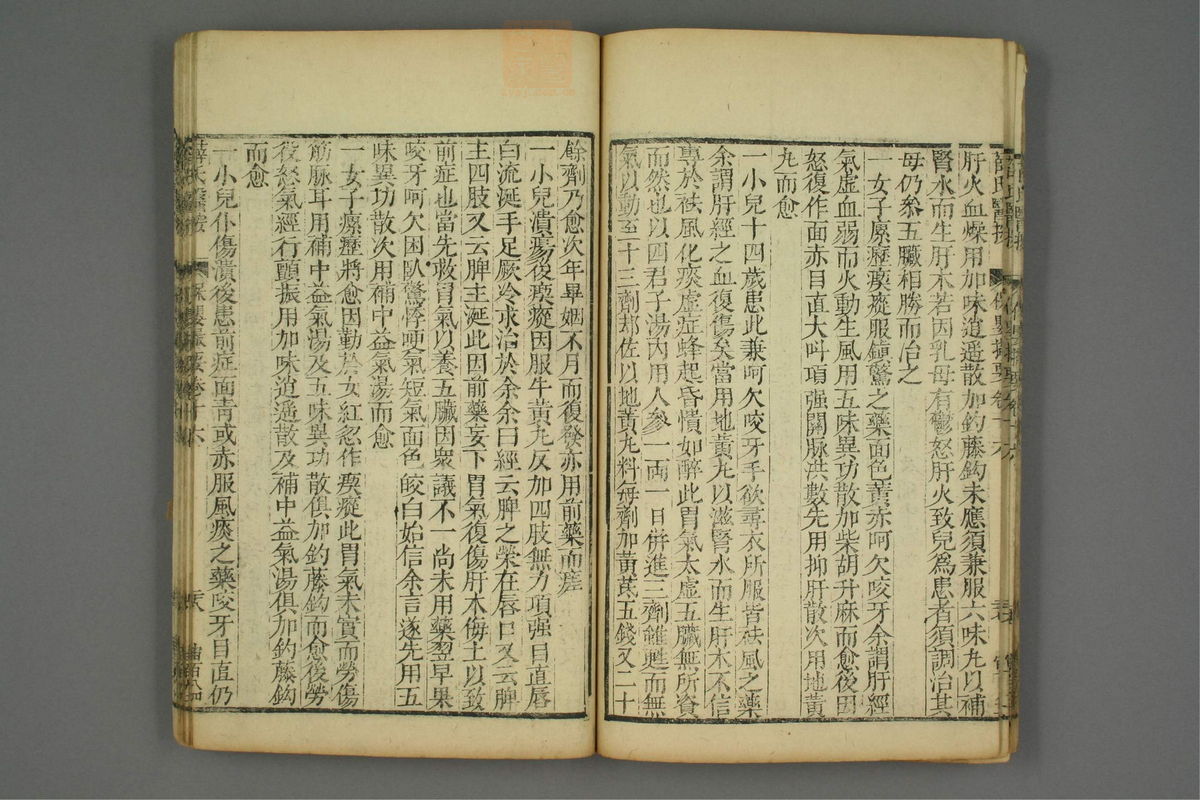 肝火血燥用加味逍遥散加鈎藤鈎未應須兼服六味丸以補
腎水而生肝木若因乳母有鬱怒肝火致兒為患者須調治其
母仍叅五臟相勝而治之
一女子瘰癧瘈瘲服鎮驚之藥面色黃赤呵欠咬牙余謂肝經
氣虛血弱而火動生風用五味異功散加柴胡升麻而愈後因
怒復作面赤目直大叫項强關脈洪數先用抑肝散次用地黃
丸而愈
一小兒十四歲患此兼呵欠咬牙手欲尋衣所服皆祛風之藥
余謂肝經之血復傷矣當用地黃丸以滋腎水而生肝木不信
專於祛風化痰虛症蜂起昏憒如醉此胃氣太虛五臟無所資
而然也以四君子湯內用人參一兩一日併進三劑雖甦而無
氣以動至二十三劑却佐以地黃丸料每劑加黃芪五錢又二十
餘劑乃愈次年畢姻不月而復發亦用前藥而痊
一小兒潰瘍後瘈瘲因服牛黃丸反加四肢無力項强目直唇
白流涎手足厥冷求治於余余曰經云脾之榮在唇口又云脾
主四肢又云脾主涎此因前藥妄下胃氣復傷肝木侮土以致
前症也當先救胃氣以養五臟因衆議不一尚未用藥翌早果
咬牙呵欠困臥驚悸哽氣短氣面色㿠白始信余言遂先用五
味異功散次用補中益氣湯而愈
一女子瘰癧將愈因勤於女紅忽作瘈瘲此胃氣未實而勞傷
筋脉耳用補中益氣湯及五味異功散俱加鈎藤鈎而愈後勞
役怒氣經行顫振用加味逍遥散及補中益氣湯俱加鈎藤鈎
而愈
一小兒仆傷潰後患前症面青或赤服風痰之藥咬牙目直仍
薛氏醫按 保嬰撮要卷十六 六